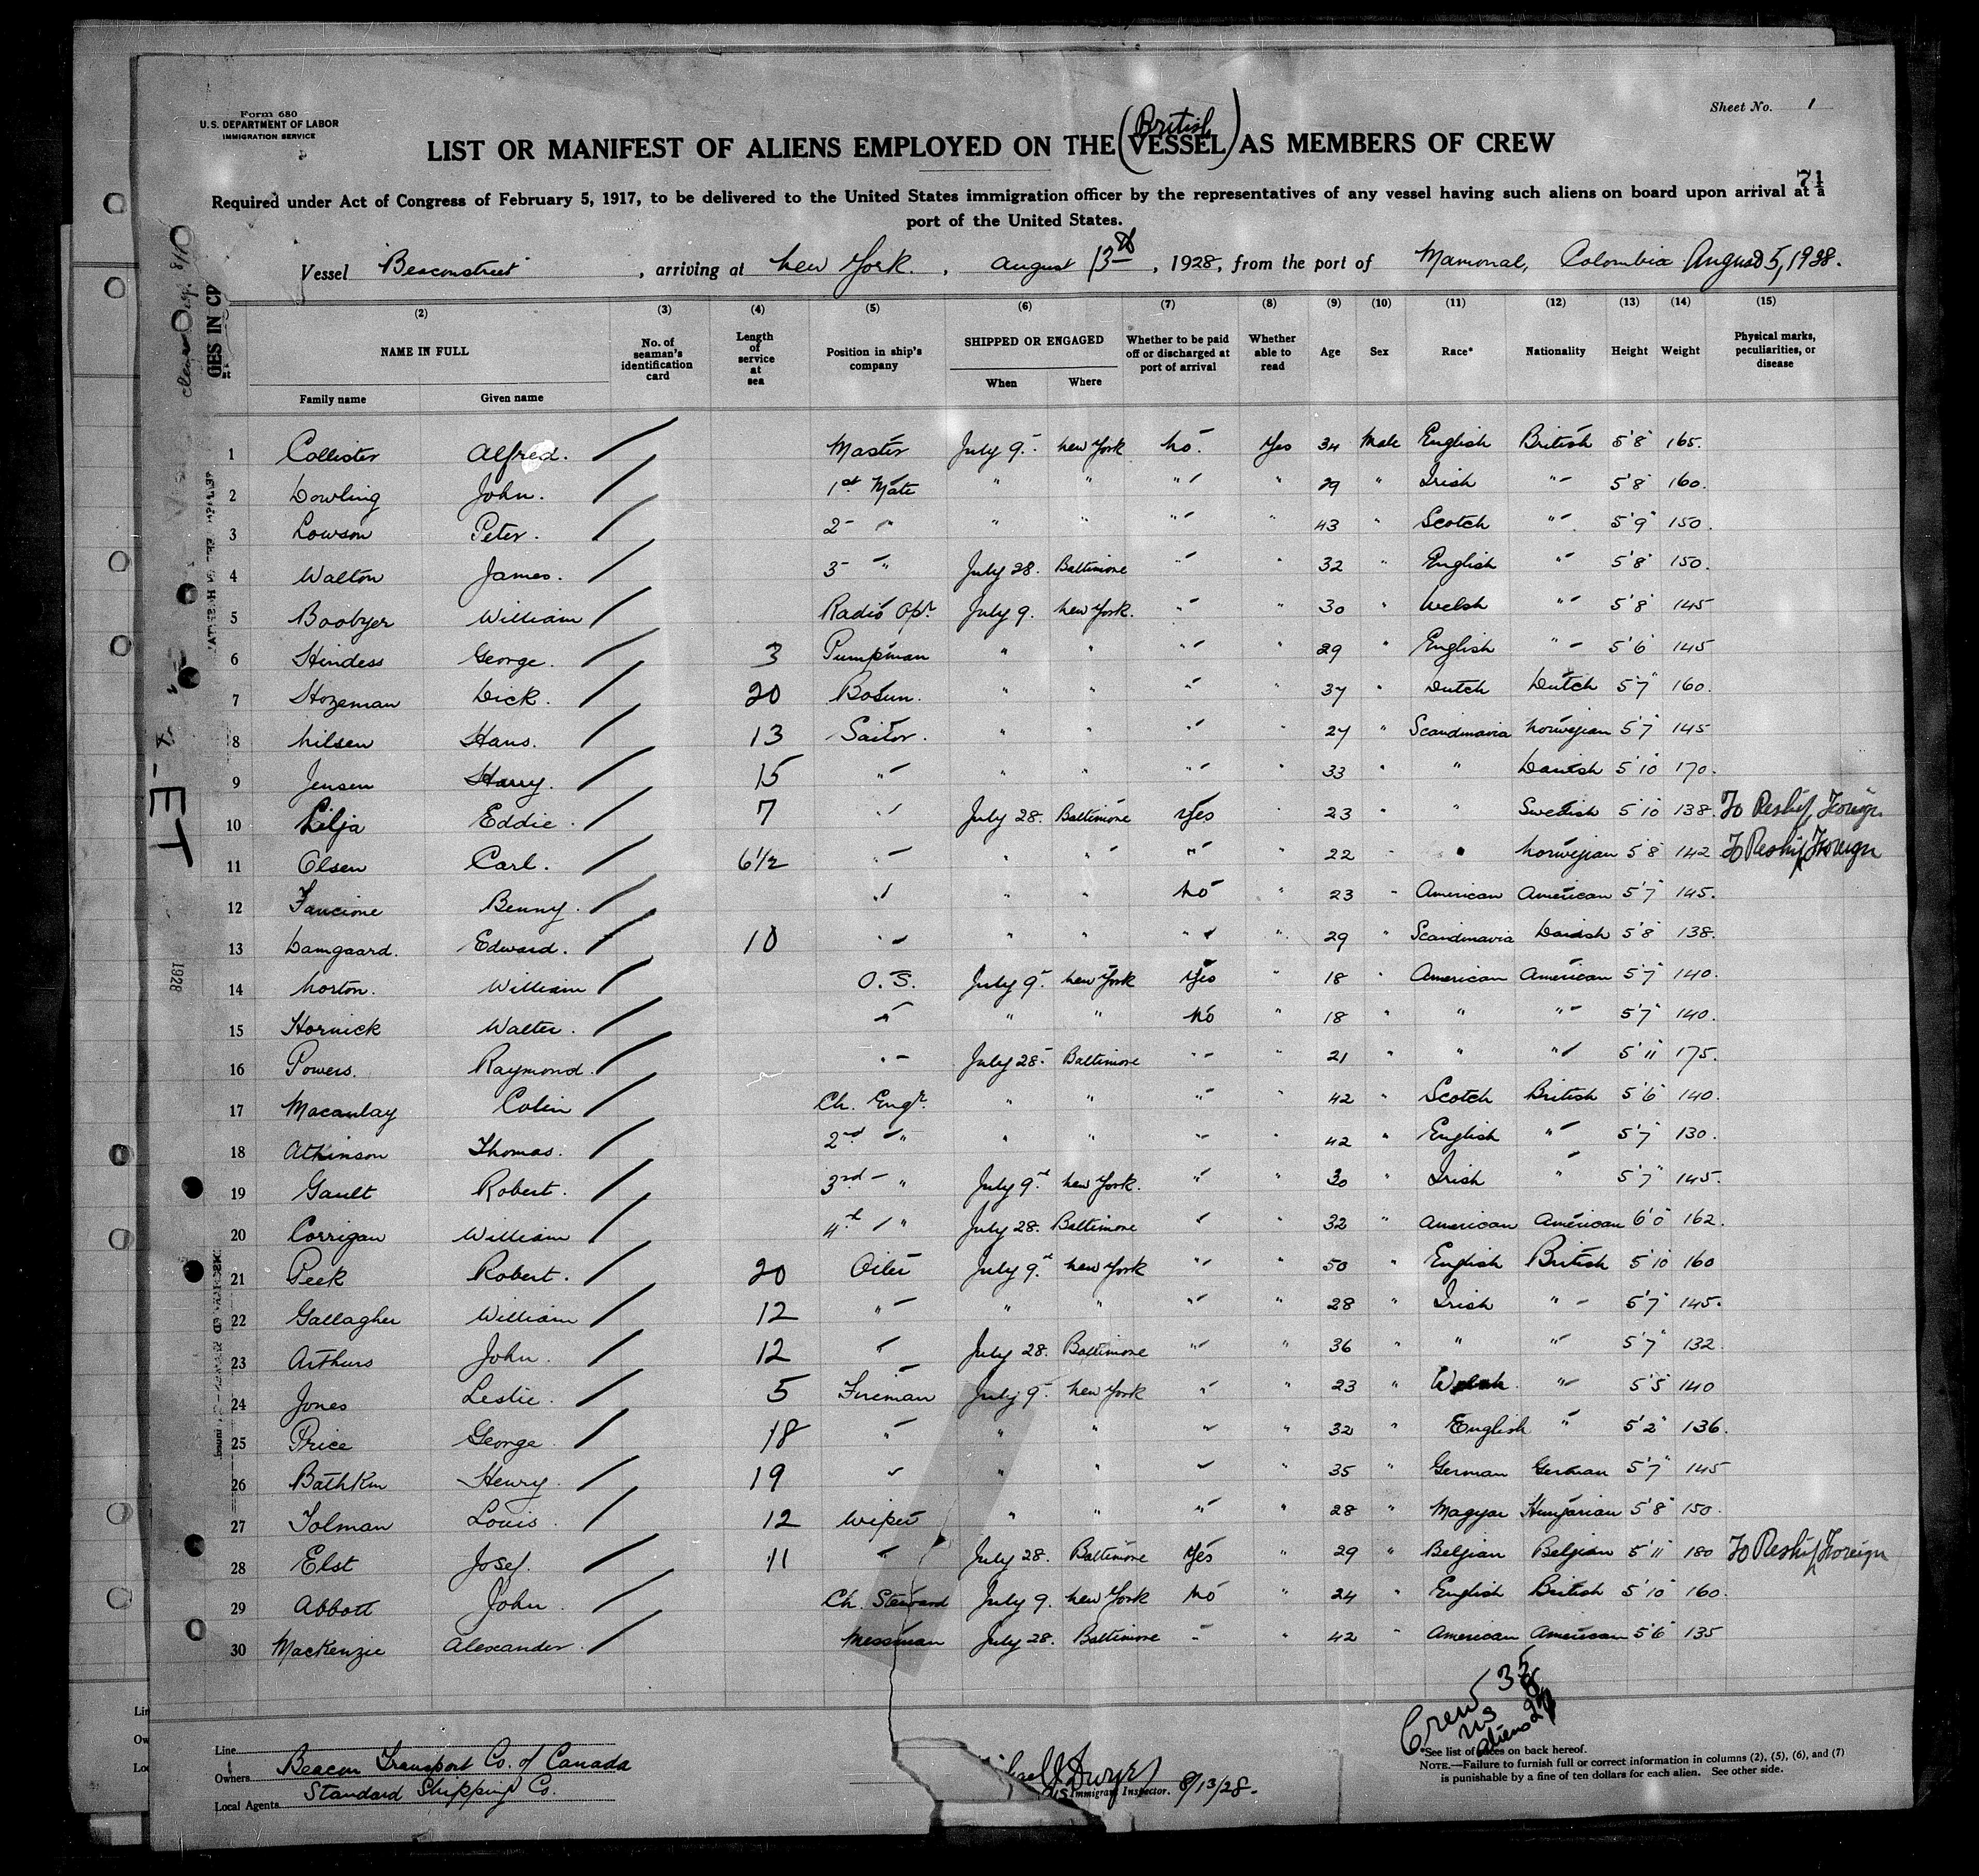 Form 680
U.S. DEPARTMENT OF LABOR
IMMIGRATION SERVICE
Sheet No. 1
British
LIST OR MANIFEST OF ALIENS EMPLOYED ON THE (VESSEL) AS MEMBERS OF CREW
71
Required under Act of Congress of February 5, 1917, to be delivered to the United States immigration officer by the representatives of any vessel having such aliens on board upon arrival at a
port of the United States.
Vessel Beaconstreet, arriving at New York., August 13th, 1928, from the port of Mamonal, Colombia August 5, 1928.
(2) (3) (4) (5) (6) (7) (8) (9) (10) (11) (12) (13) (14) (15)
NAME IN FULL No. of seaman's identification card Length of service at sea Position in ship's company SHIPPED OR ENGAGED Whether to be paid off or discharged at port of arrival Whether able to read Age Sex Race* Nationality Height Weight Physical marks, peculiarities, or disease
Family name Given name When Where
1 Collister Alfred. Master July 9. New York No. Yes 34 Male English British 5'8" 165.
2 Dowling John. 1st Mate " " " " 29 " Irish " 5'8" 160.
3 Lowson Peter. 2 " " " " " 43 " Scotch " 5'9" 150.
4 Walton James. 3 " July 28. Baltimore " " 32 " English " 5'8" 150.
5 Boobyer William Radio Opr. July 9. New York. " " 30 " Welsh " 5'8" 145
6 Hindess George. 3 Pumpman " " " " 29 " English " 5'6" 145
7 Hozeman Dick. 20 Bosun. " " " " 37 " Dutch Dutch 5'7" 160.
8 Nilsen Hans. 13 Sailor. " " " " 27 " Scandinavia Norwegian 5'7" 145
9 Jensen Harry. 15 " " " " " 33 " " Danish 5'10" 170.
10 Lilja Eddie. 7 " July 28. Baltimore Yes " 23 " " Swedish 5'10" 138. To Reship Foreign
11 Olsen Carl. 6½ " " " " " 22 " " Norwegian 5'8" 142 To Reship Foreign
12 Fancione Benny. " " " No " 23 " American American 5'7" 145.
13 Damgaard. Edward. 10 " " " " " 29 " Scandinavia Danish 5'8" 138.
14 Norton. William O.S. July 9. New York Yes " 18 " American American 5'7" 140.
15 Hornick Walter. " " " No " 18 " " " 5'7" 140.
16 Powers. Raymond. " July 28. Baltimore " " 21 " " " 5'11" 175.
17 Macaulay Colin Ch. Engr. " " " " 42 " Scotch British 5'6" 140.
18 Atkinson Thomas. 2nd " " " " " 42 " English " 5'7" 130.
19 Gault Robert. 3rd " July 9. New York. " " 30 " Irish " 5'7" 145.
20 Corrigan William 4th " July 28. Baltimore " " 32 " American American 6'0" 162.
21 Peek Robert. 20 Oiler July 9. New York " " 50 " English British 5'10" 160
22 Gallagher William 12 " " " " " 28 " Irish " 5'7" 145.
23 Arthurs John. 12 " July 28. Baltimore " " 36 " " " 5'7" 132.
24 Jones Leslie. 5 Fireman July 9. New York " " 23 " Welsh " 5'5" 140
25 Price George. 18 " " " " " 32 " English " 5'2" 136.
26 Henry. 19 " " " " " 35 " German German 5'7" 145
27 Tolman Louis. 12 Wiper " " " " 28 " Magyar Hungarian 5'8" 150.
28 Elst Josef. 11 " July 28. Baltimore Yes " 29 " Belgian Belgian 5'11" 180 To Reship Foreign
29 Abbott John. Ch. Steward July 9. New York No " 24 " English British 5'10" 160.
30 MacKenzie Alexander. Messman July 28. Baltimore " " 42 " American American 5'6" 135
Crew 35
US 8
Aliens 27
Line
Owners Beacon Transport Co. of Canada
Local Agents Standard Shipping Co.
Dwyer
Immigrant Inspector. 8/13/28.
*See list of races on back hereof.
NOTE.—Failure to furnish full or correct information in columns (2), (5), (6), and (7)
is punishable by a fine of ten dollars for each alien. See other side.
1928